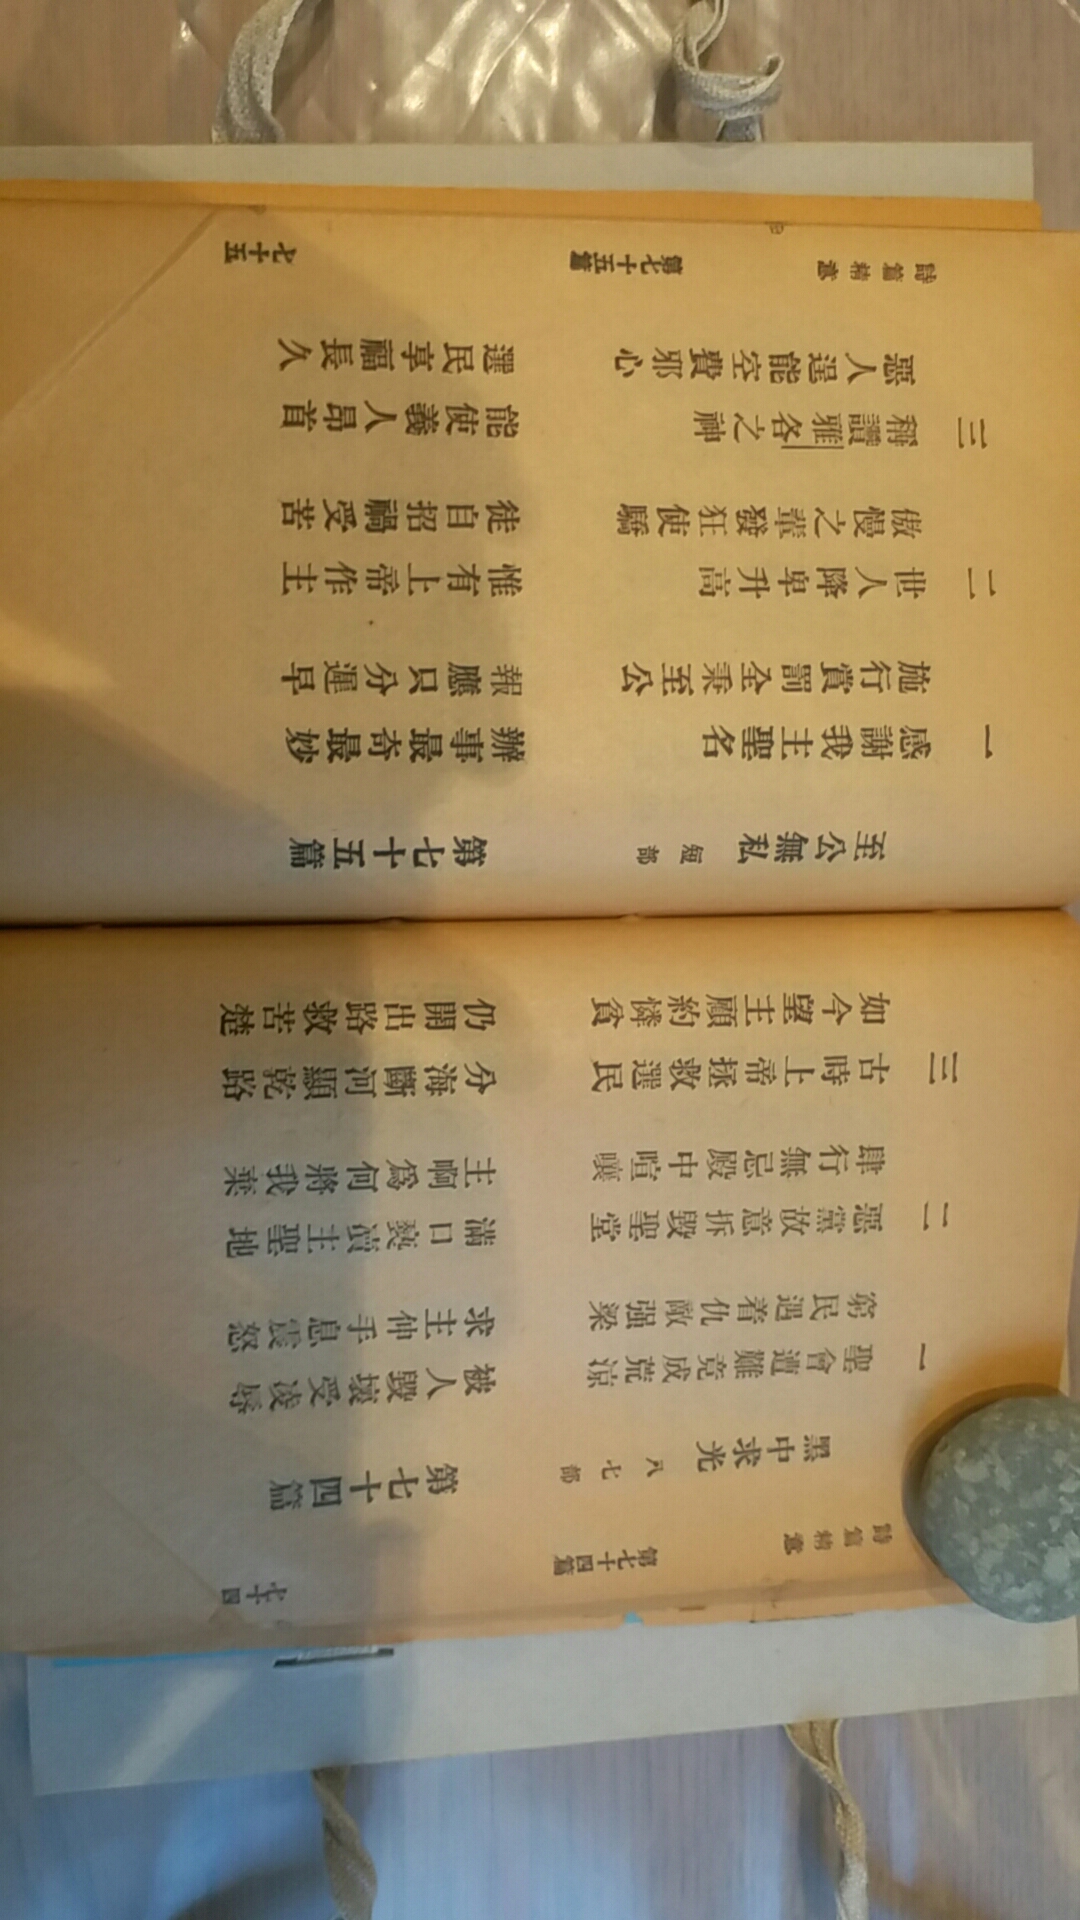 詩篇精意 第七十四篇 七十四
黑中求光 八七部 第七十四篇
一 聖會遭難竟成荒涼 被人毀壞受凌辱
窮民遇着仇敵强梁 求主伸手息震怒
二 惡黨故意拆毀聖堂 滿口褻瀆主聖地
肆行無忌殿中喧嚷 主啊爲何將我棄
三 古時上帝拯救選民 分海斷河顯乾路
如今望主顧約憐貧 仍開出路救苦楚
至公無私 短部 第七十五篇
一 感謝我主聖名 辦事最奇最妙
施行賞罰全秉至公 報應只分遲早
二 世人降卑升高 惟有上帝作主
傲慢之輩發狂使驕 徒自招禍受苦
三 稱讚雅各之神 能使義人昂首
惡人逞能空費邪心 選民享福長久
詩篇精意 第七十五篇 七十五